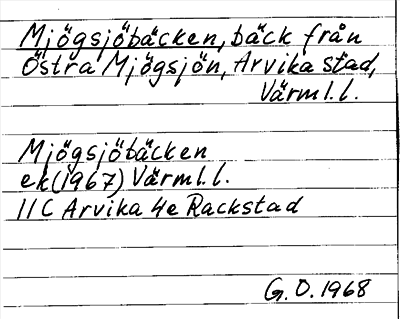 Mjögsjöbäcken, bäck från
Östra Mjögsjön, Arvika stad,
Värml.l.
Mjögsjöbäcken
ek(1967) Värml.l.
11C Arvika 4e Rackstad
G.O.1968